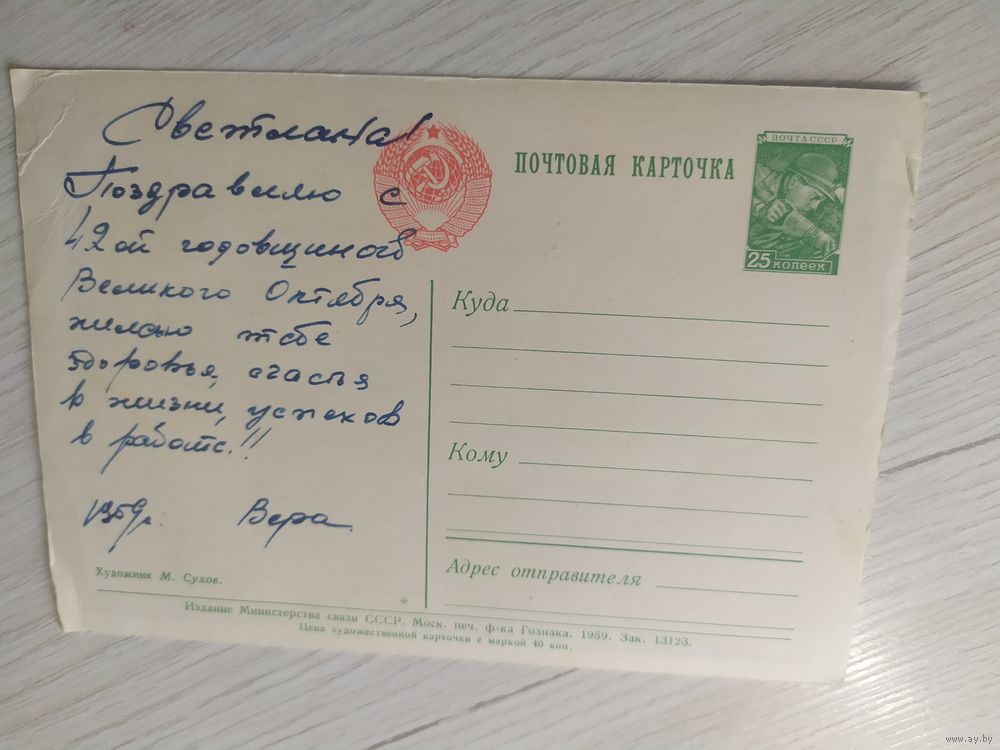 Светлана!
Поздравляю с
42ой годовщиной
Великого Октября,
желаю тебе
здоровья, счастья
в жизни, успехов
в работе!!
1959г. Вера
ПОЧТОВАЯ КАРТОЧКА
ПОЧТА СССР
25 КОПЕЕК
Куда
Кому
Адрес отправителя
Художник М. Сухов.
*
Издание Министерства связи СССР. Моск. печ. ф-ка Гознака. 1959. Зак. 13123.
Цена художественной карточки с маркой 40 коп.
www.ay.by